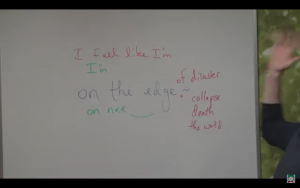 I feel like I'm
I'm
on the edge
of disaster
collapse
death
the world
on